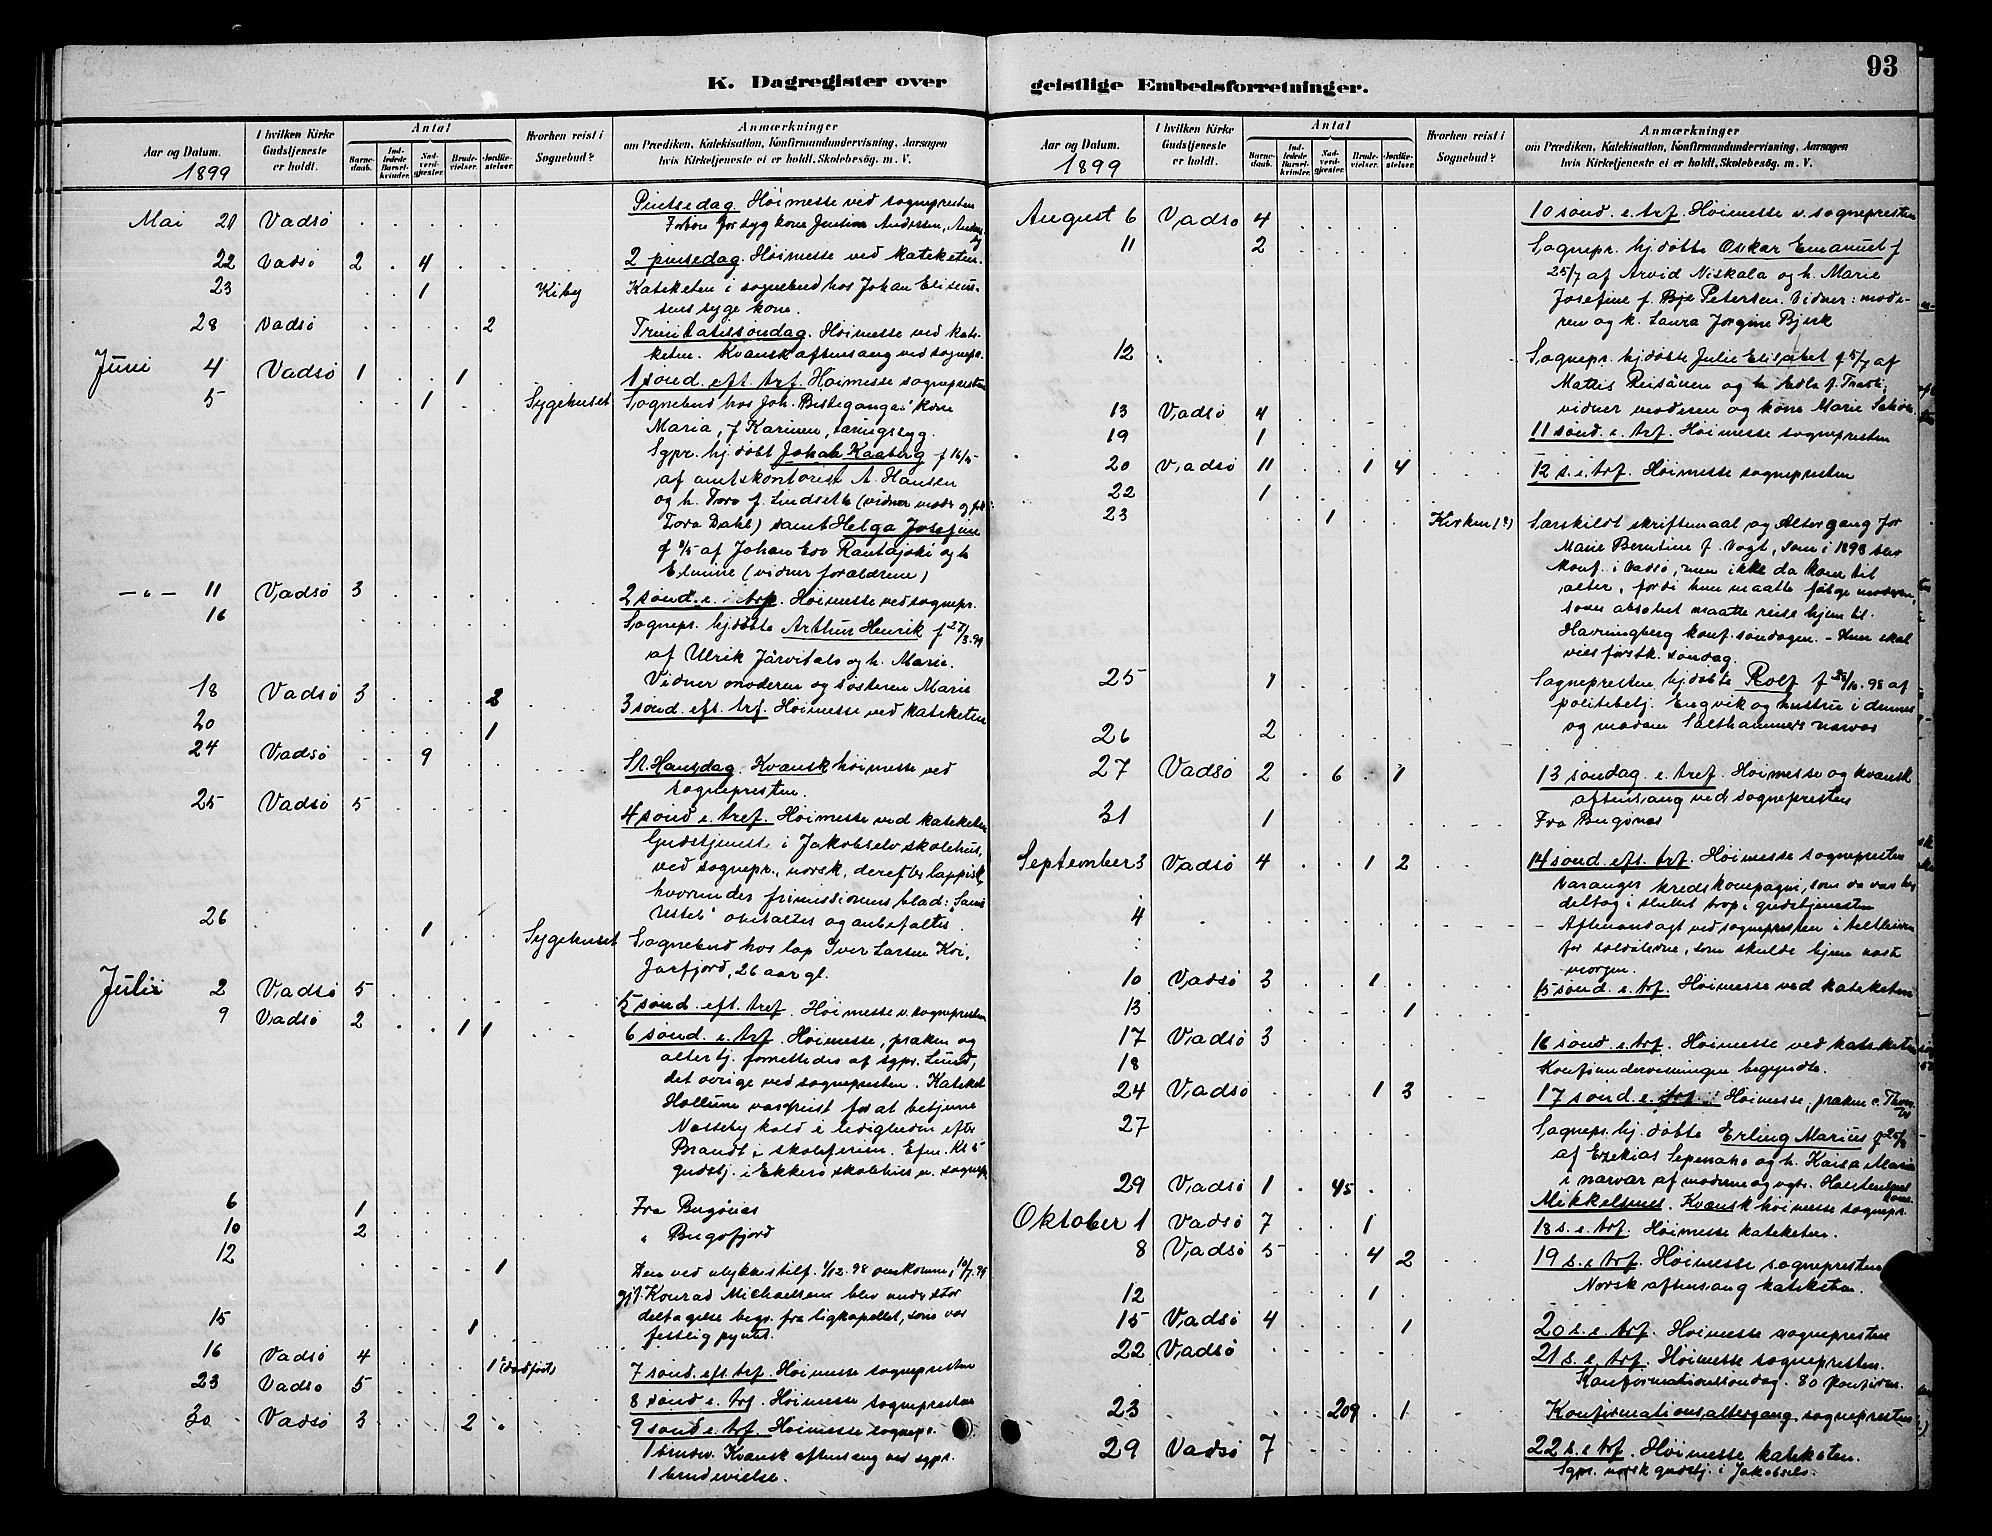 K. Dagregister over
Aar og Datum.
1899
I hvilken Kirke Gudstjeneste er holdt.
Antal
Barnedaab.
Indledede Barselkvinder.
Nadverdgjæster.
Brudevielser.
Jordfæstelser.
Hvorhen reist i Sognebud?
Anmærkninger
om Prædiken, Katekisation, Konfirmandundervisning, Aarsagen
hvis Kirketjeneste ei er holdt, Skolebesøg. m. V.
Mai 20 Vadsø Pintsedag. Høimesse ved sognepresten
Forbøn for syg kone Andersen,
22 Vadsø 2 4 2 pinsedag. Høimesse ved kateketen.
23 1 Kiby Kateketen i sognebud hos Johan Eliseus-
sens syge kone.
28 Vadsø 2 Trinitatissøndag. Høimesse ved kate-
keten. Kvænsk aftensang ved sognepr.
Juni 4 Vadsø 1 1 1 sønd. eft. trf. Høimesse sognepresten
5 1 Sygehuset Sognebud hos Joh. kone
Maria, f. Karinen, tæringssyg.
Sgpr. hj.døbt Johan Kaaberg f 16/5
af amtskontorist A. Hansen
og h. Tora f. Lindseth (vidner moder og
Tora Dahl) samt Helga Josefine
af Johan Rantajoki og h.
(vidner forældrene)
-"- 11 Vadsø 3 2 sønd. e. trf. Høimesse ved sognepr.
16 Sognepr. hj.døbte Arthur Henrik f 27/3.99
af Ulrik Järvitalo og h. Marie.
Vidner moderen og søsteren Marie
18 Vadsø 3 2 3 sønd. eft. trf. Høimesse ved kateketen
20 1
24 Vadsø 9 St. Hansdag. Kvænsk høimesse ved
sognepresten.
25 Vadsø 5 4 sønd e. tref. Høimesse ved kateketen
Gudstjeneste i Jakobselv skolehus,
ved sognepr., norsk, derefter lappisk,
hvorunder frimissionens blad:
omtaltes og anbefaltes.
26 1 Sygehuset Sognebud hos lap Iver Larsen
Jarfjord, 26 aar gl.
Juli 2 Vadsø 5 5 sønd. eft. tref. Høimesse v. sognepresten
9 Vadsø 2 1 1 6 sønd. e. trf. Høimesse, præken og
altertj. forrettedes af sgpr. Lund,
det øvrige ved sognepresten. Kateket
Hollum var reist for at betjene
Næsseby kald i ledigheden efter
Brandt i skoleferien. Efm. Kl 5
gudstj. i Ekkerø skolehus v. sognepr.
6 1 Fra Bugønæs
10 2 " Bugøfjord
12 1 Den ved ulykkestilf. 1/12.98 omkomne, 10/7.99
gjf. Konrad Michaelsen blev under stor
deltagelse begr. fra ligkapellet, som var
festlig pyntet.
15 1
16 Vadsø 4 1 (dødfødt) 7 sønd. eft. trf. Høimesse sognepresten
23 Vadsø 5 8 sønd e. trf. Høimesse sognepresten
30 Vadsø 3 2 9 sønd e. trf. Høimesse sognepr.
1 brudev. Kvænsk aftensang ved sgpr.
1 brudevielse.
93
geistlige Embedsforretninger.
Aar og Datum.
1899
I hvilken Kirke Gudstjeneste er holdt.
Antal
Barnedaab.
Indledede Barselkvinder.
Nadverdgjæster.
Brudevielser.
Jordfæstelser.
Hvorhen reist i Sognebud?
Anmærkninger
om Prædiken, Katekisation, Konfirmandundervisning, Aarsagen
hvis Kirketjeneste ei er holdt, Skolebesøg. m. V.
August 6 Vadsø 4 10 sønd. e. trf. Høimesse v. sognepresten
11 2 Sognepr. hj.døbte Oskar Emanuel f
25/7 af Arvid Niskala og h. Marie
Josefine f. Petersen. Vidner: mode-
ren og k. Laura Jørgine Bjerk
12 Sognepr. hj.døbte Julie Elisabet f 5/7 af
Mattis og h.
vidner moderen og kone Marie
13 Vadsø 4 11 sønd. e. trf. Høimesse sognepresten
19 1
20 Vadsø 11 1 4 12 s. e. trf. Høimesse sognepresten
22 1
23 1 Kirken (?) Særskildt skriftemaal og Altergang for
Marie Berntine f. Vogt, som i 1898 blev
konf. i Vadsø, men ikke da kom til
alter, fordi hun maatte følge moderen,
som absolut maatte reise hjem til
Havningberg konf. søndagen. - Hun skal
vies førstk. søndag.
25 1 Sognepresten hj.døbte Rolf f 98 af
politibetj. Engvik og hustru i dennes
og madam Salthammers nærvær
26 2
27 Vadsø 2 6 1 13 søndag e. tref. Høimesse og kvænsk
aftensang ved sognepresten
31 1 Fra Bugønæs
September 3 Vadsø 4 1 2 14 sønd. eft. trf. Høimesse sognepresten
Varanger kredskompagni, som da var her
deltog i sluttet trop i gudstjenesten
4 - Aftenandagt ved sognepresten i teltleiren
for soldaterne, som skulde hjem næste
morgen.
10 Vadsø 3 1 15 sønd. e. trf. Høimesse ved kateketen
13 1
17 Vadsø 3 16 sønd. e. trf. Høimesse ved kateketen
18 Konf.undervisningen begyndte.
24 Vadsø 1 3 17 sønd. e. trf. Høimesse, præken c. Thom-
27 Sognepr. hj.døbte Erling Marius f
af Ezekias og h. Kaisa Maria
i nærvær af moderen og
29 Vadsø 1 45 Mikkelsmes. Kvænsk høimesse sognepr.
Oktober 1 Vadsø 7 1 18 s. e. trf. Høimesse kateketen.
8 Vadsø 5 4 2 19 s. e. trf. Høimesse sognepresten
Norsk aftensang kateketen.
12 1
15 Vadsø 4 1 20 s. e. trf. Høimesse sognepresten
22 Vadsø 21 s. e. trf. Høimesse sognepresten.
Konfirmationssøndag. 80 konfirm.
23 209 1 Konfirmationsaltergang sognepresten
29 Vadsø 7 22 s. e. trf. Høimesse kateketen.
Sgpr. norsk gudstj. i Jakobselv.